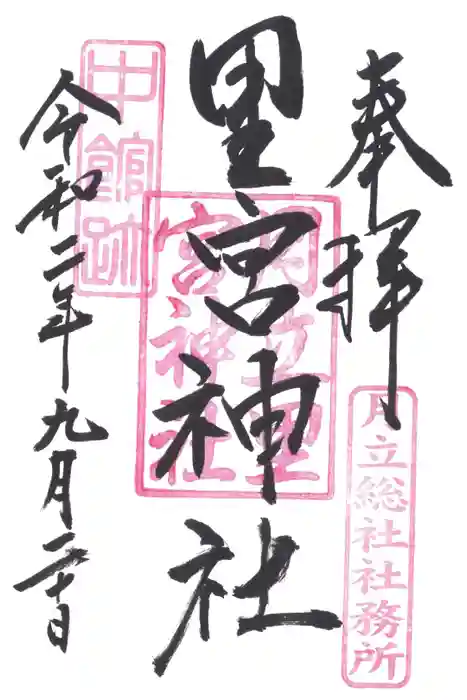 奉拝
月立総社社務所
里宮神社
月立里
宮神社
中館跡
令和二年九月二十日